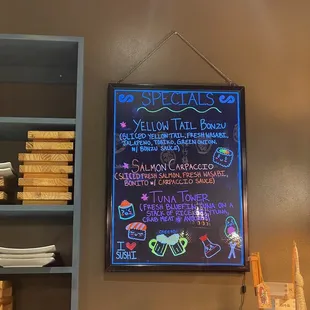 SPECIALS
YELLOW TAIL BONZU
(SLICED YELLOW TAIL, FRESH WASABI,
JALAPENO, TOBIKO, GREEN ONION
W/ BONZU SAUCE)
SALMON CARPACCIO
(SLICED FRESH SALMON, FRESH WASABI,
BONITO W/ CARPACCIO SAUCE)
TUNA TOWER
(FRESH BLUEFIN TUNA ON A
STACK OF RICE
CRAB MEAT @ AVOCADO)
I ♥
SUSHI